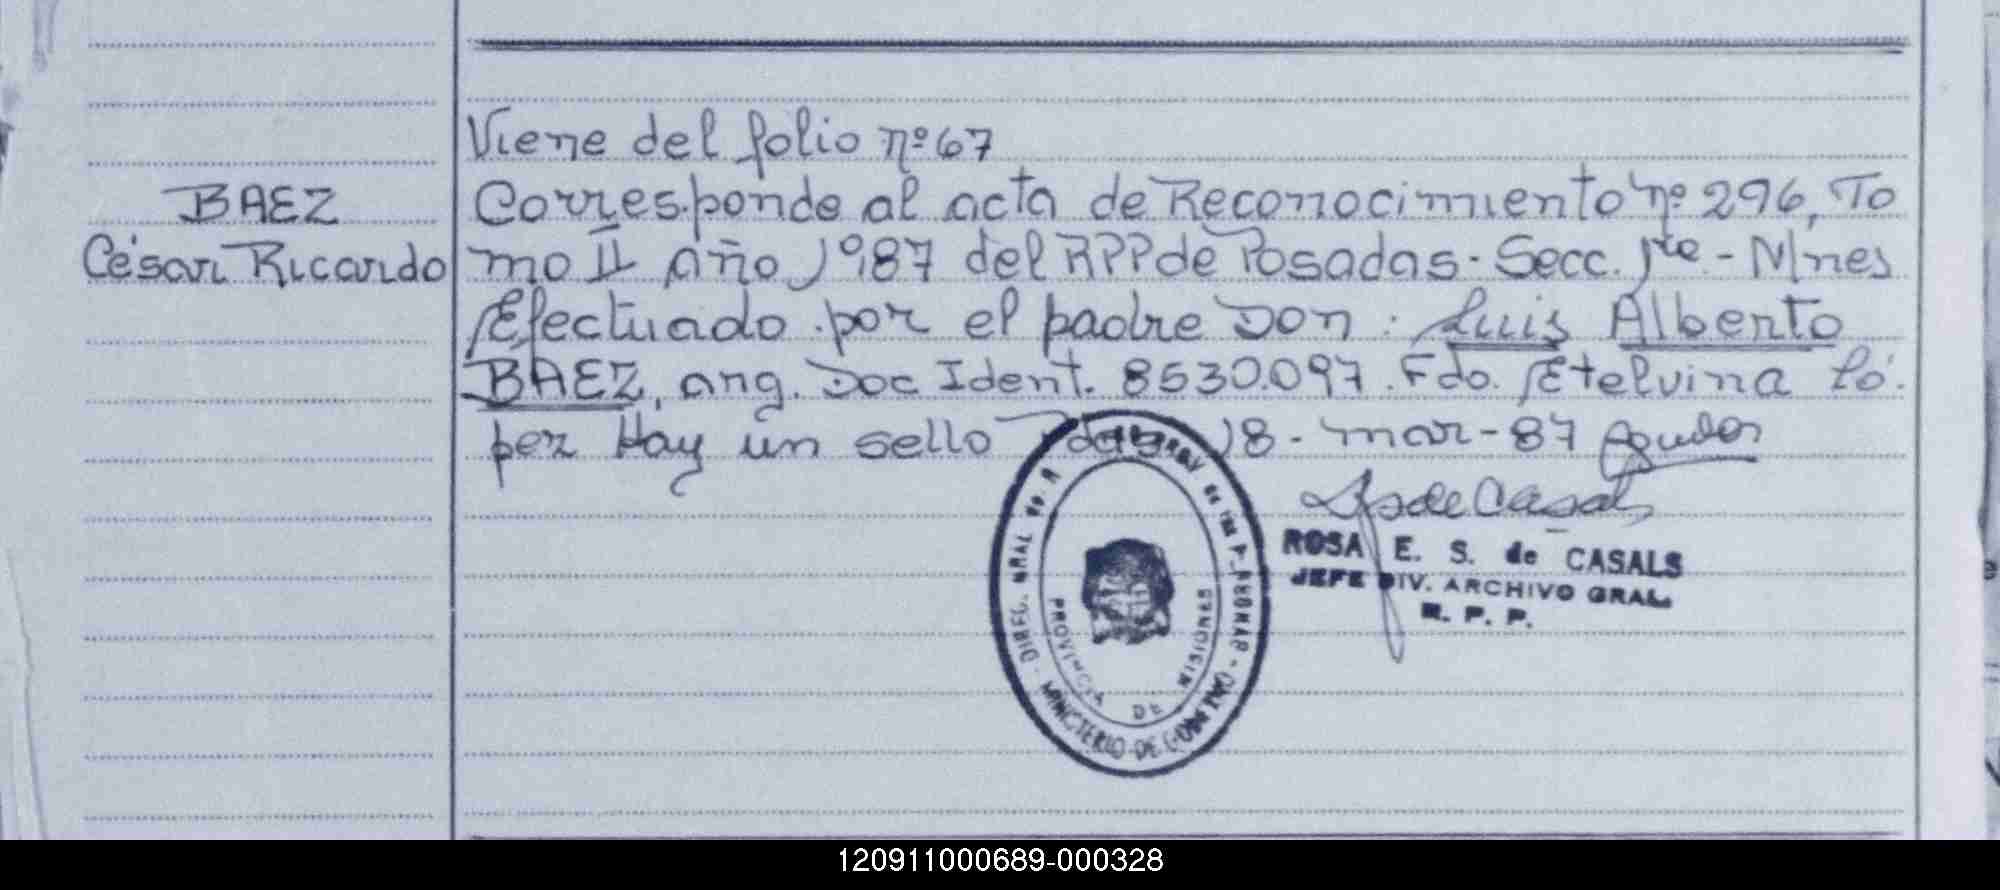 Viene del folio nº 67
BAEZ
César Ricardo
Corresponde al acta de Reconocimiento nº 296, To
mo II año 1987 del RPP de Posadas. Secc. 1ra - Mnes
Efectuado por el padre Don: Luis Alberto
BAEZ, arg. Doc Ident. 8530.097. Fdo. Etelvina Ló.
pez Hay un sello Pdas 18 - mar - 87
de Casals
ROSA E. S. de CASALS
JEFE DIV. ARCHIVO GRAL.
R. P. P.
DIREC. GRAL de de las P
MINISTERIO DE
PROVINCIA DE MISIONES
120911000689-000328